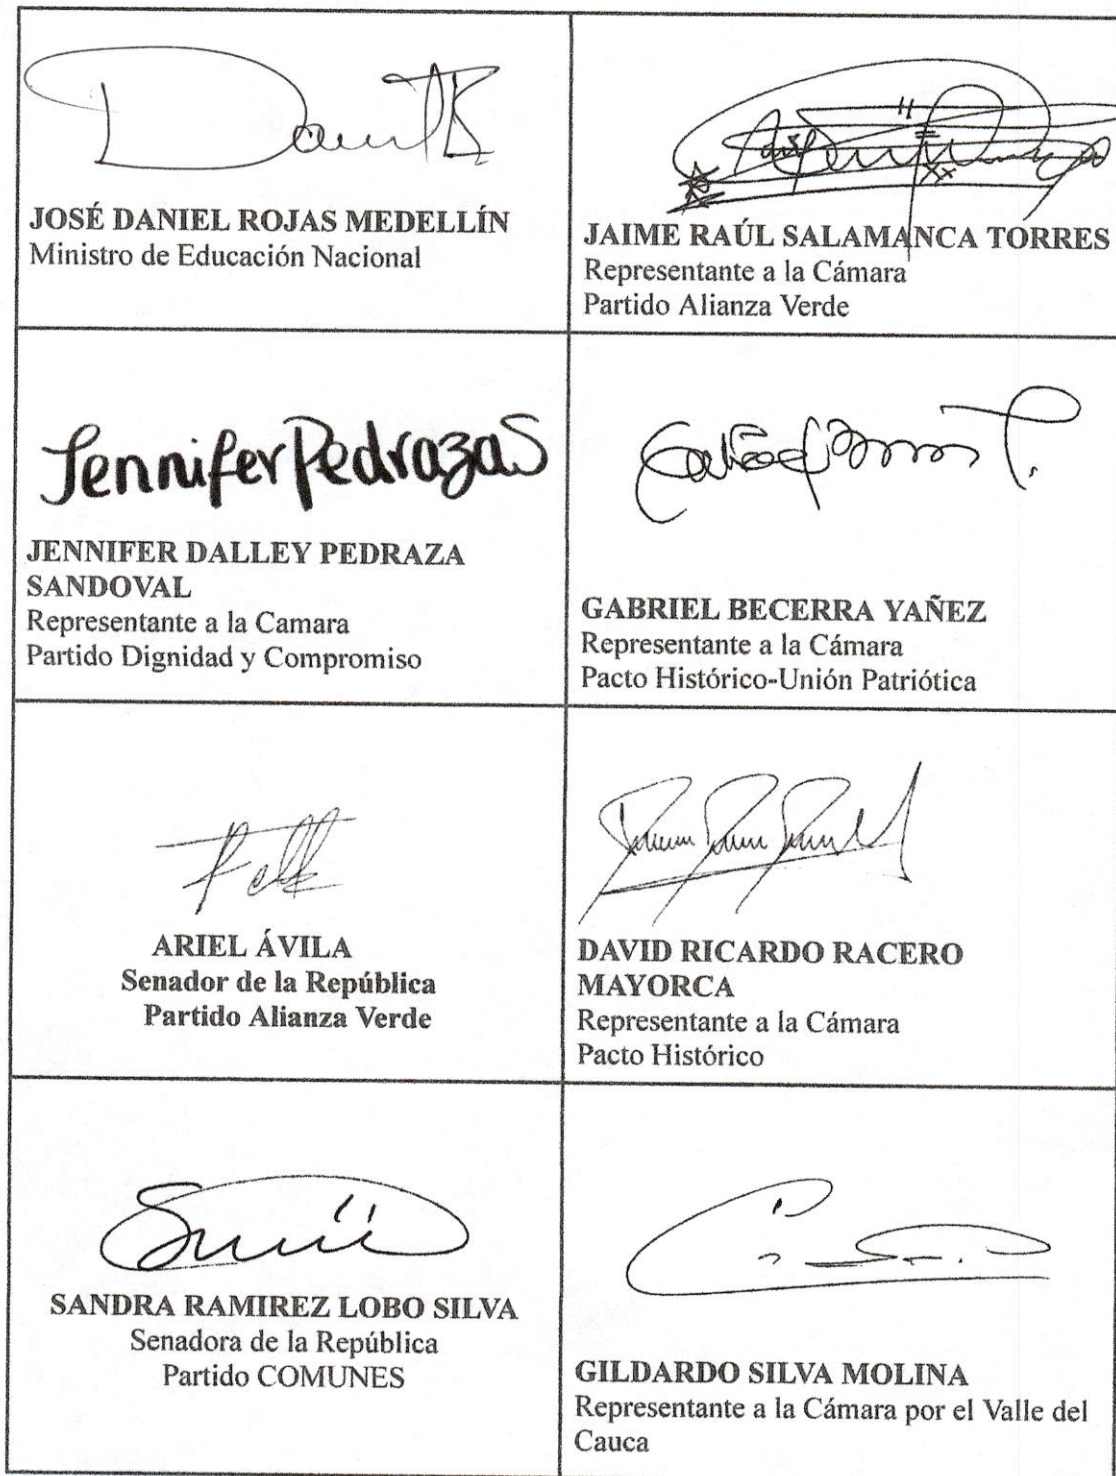 JOSÉ DANIEL ROJAS MEDELLÍN
Ministro de Educación Nacional
JAIME RAÚL SALAMANCA TORRES
Representante a la Cámara
Partido Alianza Verde
Jennifer Pedraza S
JENNIFER DALLEY PEDRAZA
SANDOVAL
Representante a la Camara
Partido Dignidad y Compromiso
GABRIEL BECERRA YAÑEZ
Representante a la Cámara
Pacto Histórico-Unión Patriótica
ARIEL ÁVILA
Senador de la República
Partido Alianza Verde
DAVID RICARDO RACERO
MAYORCA
Representante a la Cámara
Pacto Histórico
SANDRA RAMIREZ LOBO SILVA
Senadora de la República
Partido COMUNES
GILDARDO SILVA MOLINA
Representante a la Cámara por el Valle del
Cauca